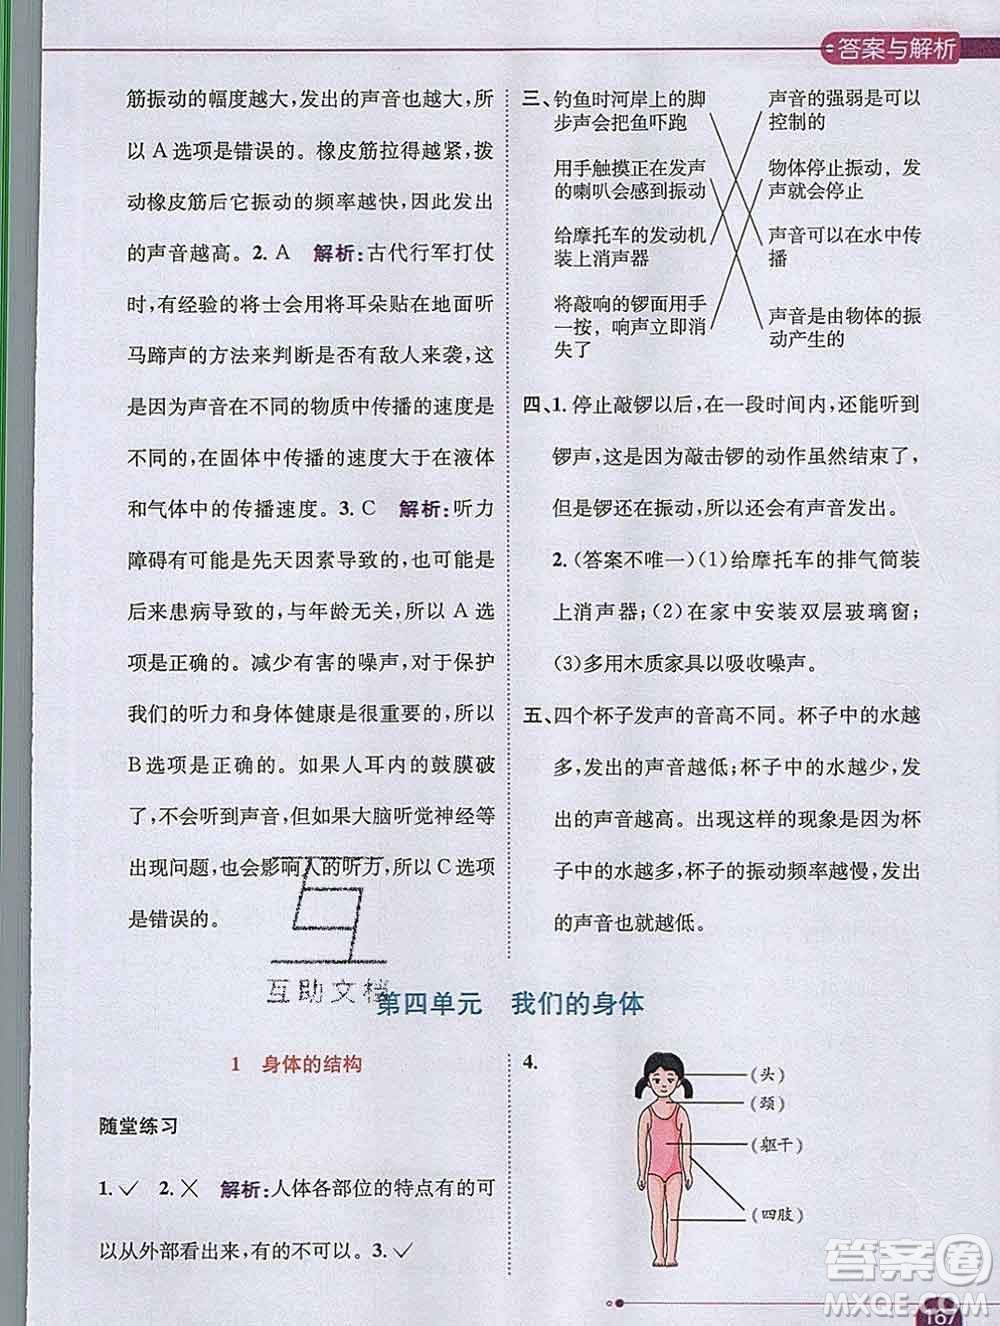 答案与解析
筋振动的幅度越大，发出的声音也越大，所
以 A 选项是错误的。橡皮筋拉得越紧，拨
动橡皮筋后它振动的频率越快，因此发出
的声音越高。2. A　解析:古代行军打仗
时，有经验的将士会用将耳朵贴在地面听
马蹄声的方法来判断是否有敌人来袭，这
是因为声音在不同的物质中传播的速度是
不同的，在固体中传播的速度大于在液体
和气体中的传播速度。3. C　解析:听力
障碍有可能是先天因素导致的，也可能是
后来患病导致的，与年龄无关，所以 A 选
项是正确的。减少有害的噪声，对于保护
我们的听力和身体健康是很重要的，所以
B选项是正确的。如果人耳内的鼓膜破
了，不会听到声音，但如果大脑听觉神经等
出现问题，也会影响人的听力，所以C选项
是错误的。
三、钓鱼时河岸上的脚
步声会把鱼吓跑
声音的强弱是可以
控制的
用手触摸正在发声
的喇叭会感到振动
物体停止振动，发
声就会停止
给摩托车的发动机
装上消声器
声音可以在水中传
播
将敲响的锣面用手
一按，响声立即消
失了
声音是由物体的振
动产生的
四、1. 停止敲锣以后，在一段时间内，还能听到
锣声，这是因为敲击锣的动作虽然结束了，
但锣还在振动，所以还有声音发出。
2. (答案不唯一)(1)给摩托车的排气筒装
上消声器；(2)在家中安装双层玻璃窗；
(3)多用木质家具以吸收噪声。
五、四个杯子发声的音高不同。杯子中的水越
多，发出的声音越低；杯子中的水越少，发
出的声音越高。出现这样的现象是因为杯
子中的水越多，杯子的振动频率越慢，发出
的声音也就越低。
互助文档
第四单元　我们的身体
1　身体的结构
随堂练习
1. ✓　2. ✕　解析:人体各部位的特点有的可
以从外部看出来，有的不可以。3. ✓
4.
(头)
(颈)
(躯干)
(四肢)
答案圈
MXQE.COM
167